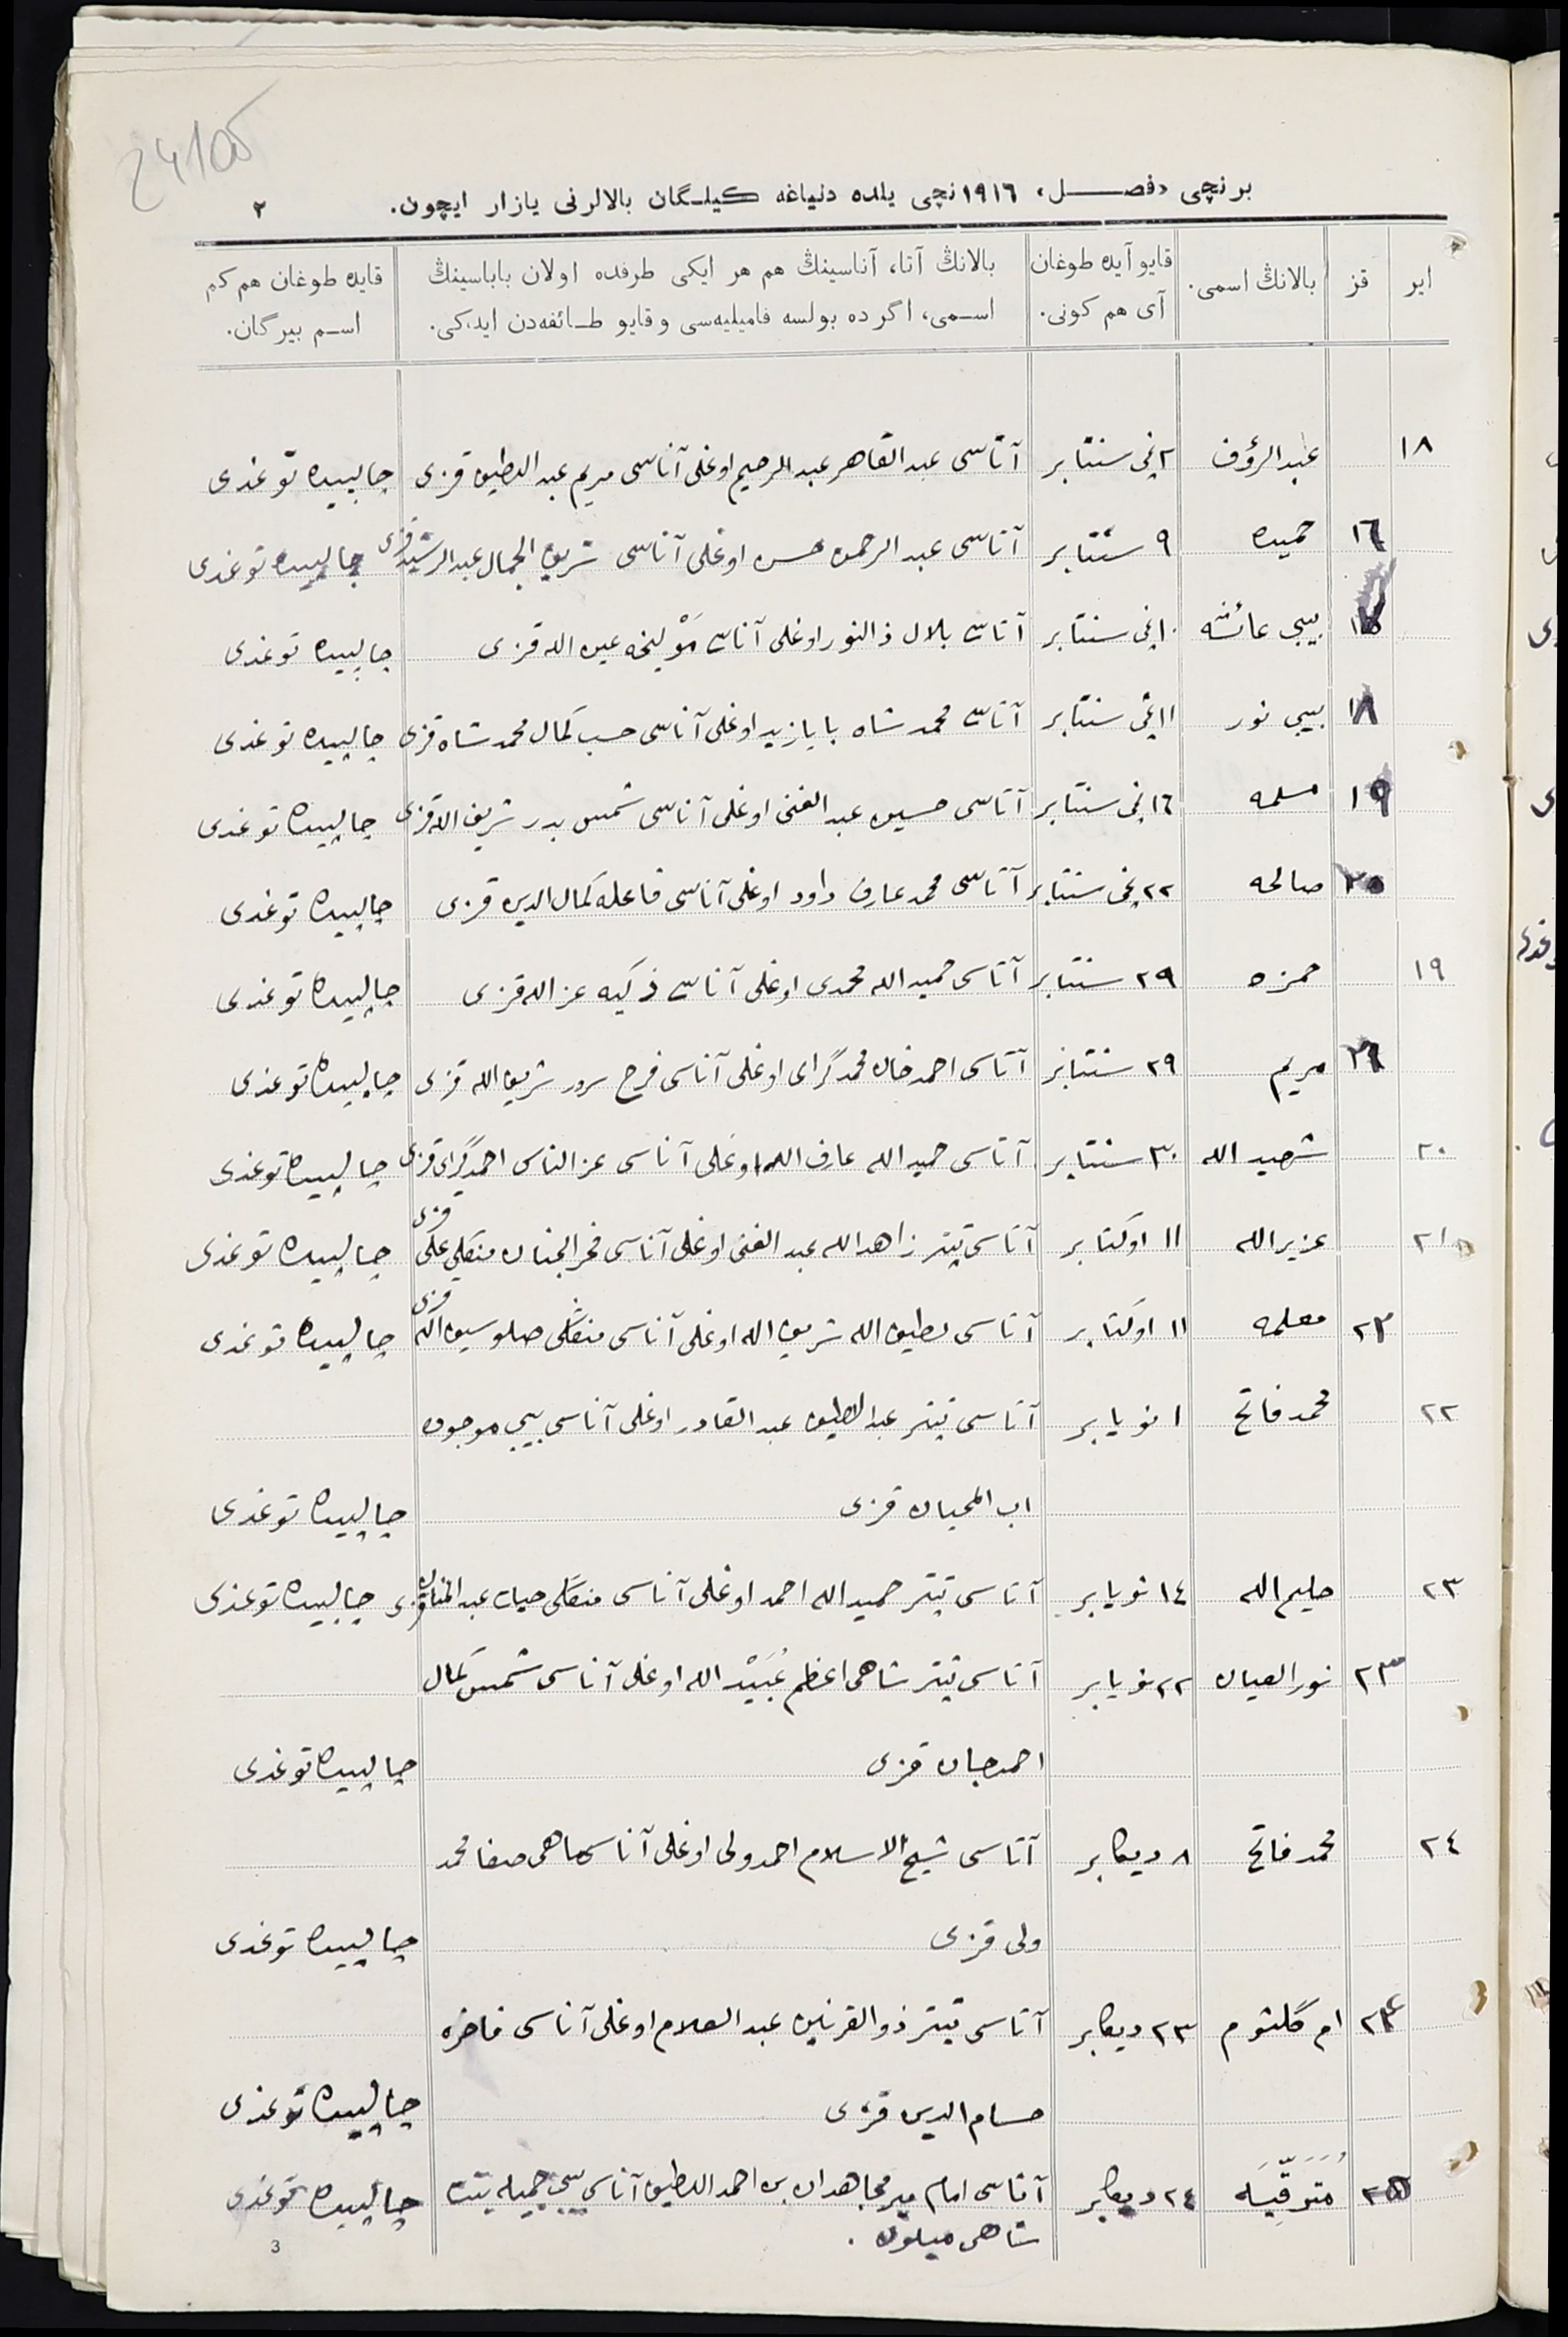 24105
برنچی «فصـــل» ١٩١٦نچی یلده دنیاغه کیلـگان بالالرنی یازار ایچون. ٢
ایر قز بالانڭ اسمی. قایو آیده طوغان آی هم کونی. بالانڭ آتا، آناسینڭ هم هر ایکی طرفده اولان باباسینڭ اسـمی، اگر ده بولسه فامیلیه‌سی و قایو طـائفه‌دن ایدکی. قایده طوغان هم کم اسـم بیرگان.
١٨ عبدالرؤف ٢نچی سنتابر آتاسی عبد القاهر عبد الرحیم اوغلی آناسی مریم عبد اللطیف قزی چالپیده توغدی
١٦ حمیده ٩ سنتابر آتاسی عبد الرحمن حسن اوغلی آناسی شریف الجمال عبد الرشید قزی چالپیده توغدی
بیبی عائشه ١٠نچی سنتابر آتاسی بلال ذالنور اوغلی آناسی الله قزی چالپیده توغدی
١٨ بیبی نور ١١نچی سنتابر آتاسی محمد شاه بایازید اوغلی آناسی حسب کمال محمد شاه قزی چالپیده توغدی
١٩ مسلمه ١٦نچی سنتابر آتاسی حسین عبد الغنی اوغلی آناسی شمس بدر شریف الله قزی چالپیده توغدی
٢٠ صالحه ٢٢نچی سنتابر آتاسی محمد عارف داود اوغلی آناسی فاعله کمال الدین قزی چالپیده توغدی
١٩ حمزه ٢٩ سنتابر آتاسی حمید الله محمدی اوغلی آناسی ذکیه عز الله قزی چالپیده توغدی
٢١ مریم ٢٩ سنتابر آتاسی احمد خان محمد گرای اوغلی آناسی فرح سرور شریف الله قزی چالپیده توغدی
٢٠ شهید الله ٣٠ سنتابر آتاسی حمید الله عارف الله اوغلی آناسی عز الناس احمد گرای قزی چالپیده توغدی
٢١ عزیر الله ١١ اوکتابر آتاسی تپتر زاهد الله عبد الغنی اوغلی آناسی فخر الجنان منقلی علی قزی چالپیده توغدی
٢٢ معلمه ١١ اوکتابر آتاسی لطیف الله شریف الله اوغلی آناسی صلو الله قزی چالپیده توغدی
٢٢ محمد فاتح ١ نویابر آتاسی تپتر عبد اللطیف عبد القادر اوغلی آناسی بیبی موجود
قزی چالپیده توغدی
٢٣ حلیم الله ١٤ نویابر آتاسی تپتر حمید الله احمد اوغلی آناسی حیات عبد المنان قزی چالپیده توغدی
٢٣ نور العیان ٢٢ نویابر آتاسی تپتر شاهی اعظم عُبَیْد الله اوغلی آناسی شمس کمال
احمد جان قزی چالپیده توغدی
٢٤ محمد فاتح ٨ دیکابر آتاسی شیخ الاسلام احمد ولی اوغلی آناسی ماهی صفا محمد
ولی قزی چالپیده توغدی
٢٤ ام گلثوم ٢٣ دیکابر آتاسی تپتر ذو القرنین عبد السلام اوغلی آناسی فاخره
حسام الدین قزی چالپیده توغدی
٢٥ متوقّیَه ٢٤ دیکابر آتاسی امام بن احمد اللطیف آناسی بیبی جمیله بنت چالپیده توغدی
شاهی
3